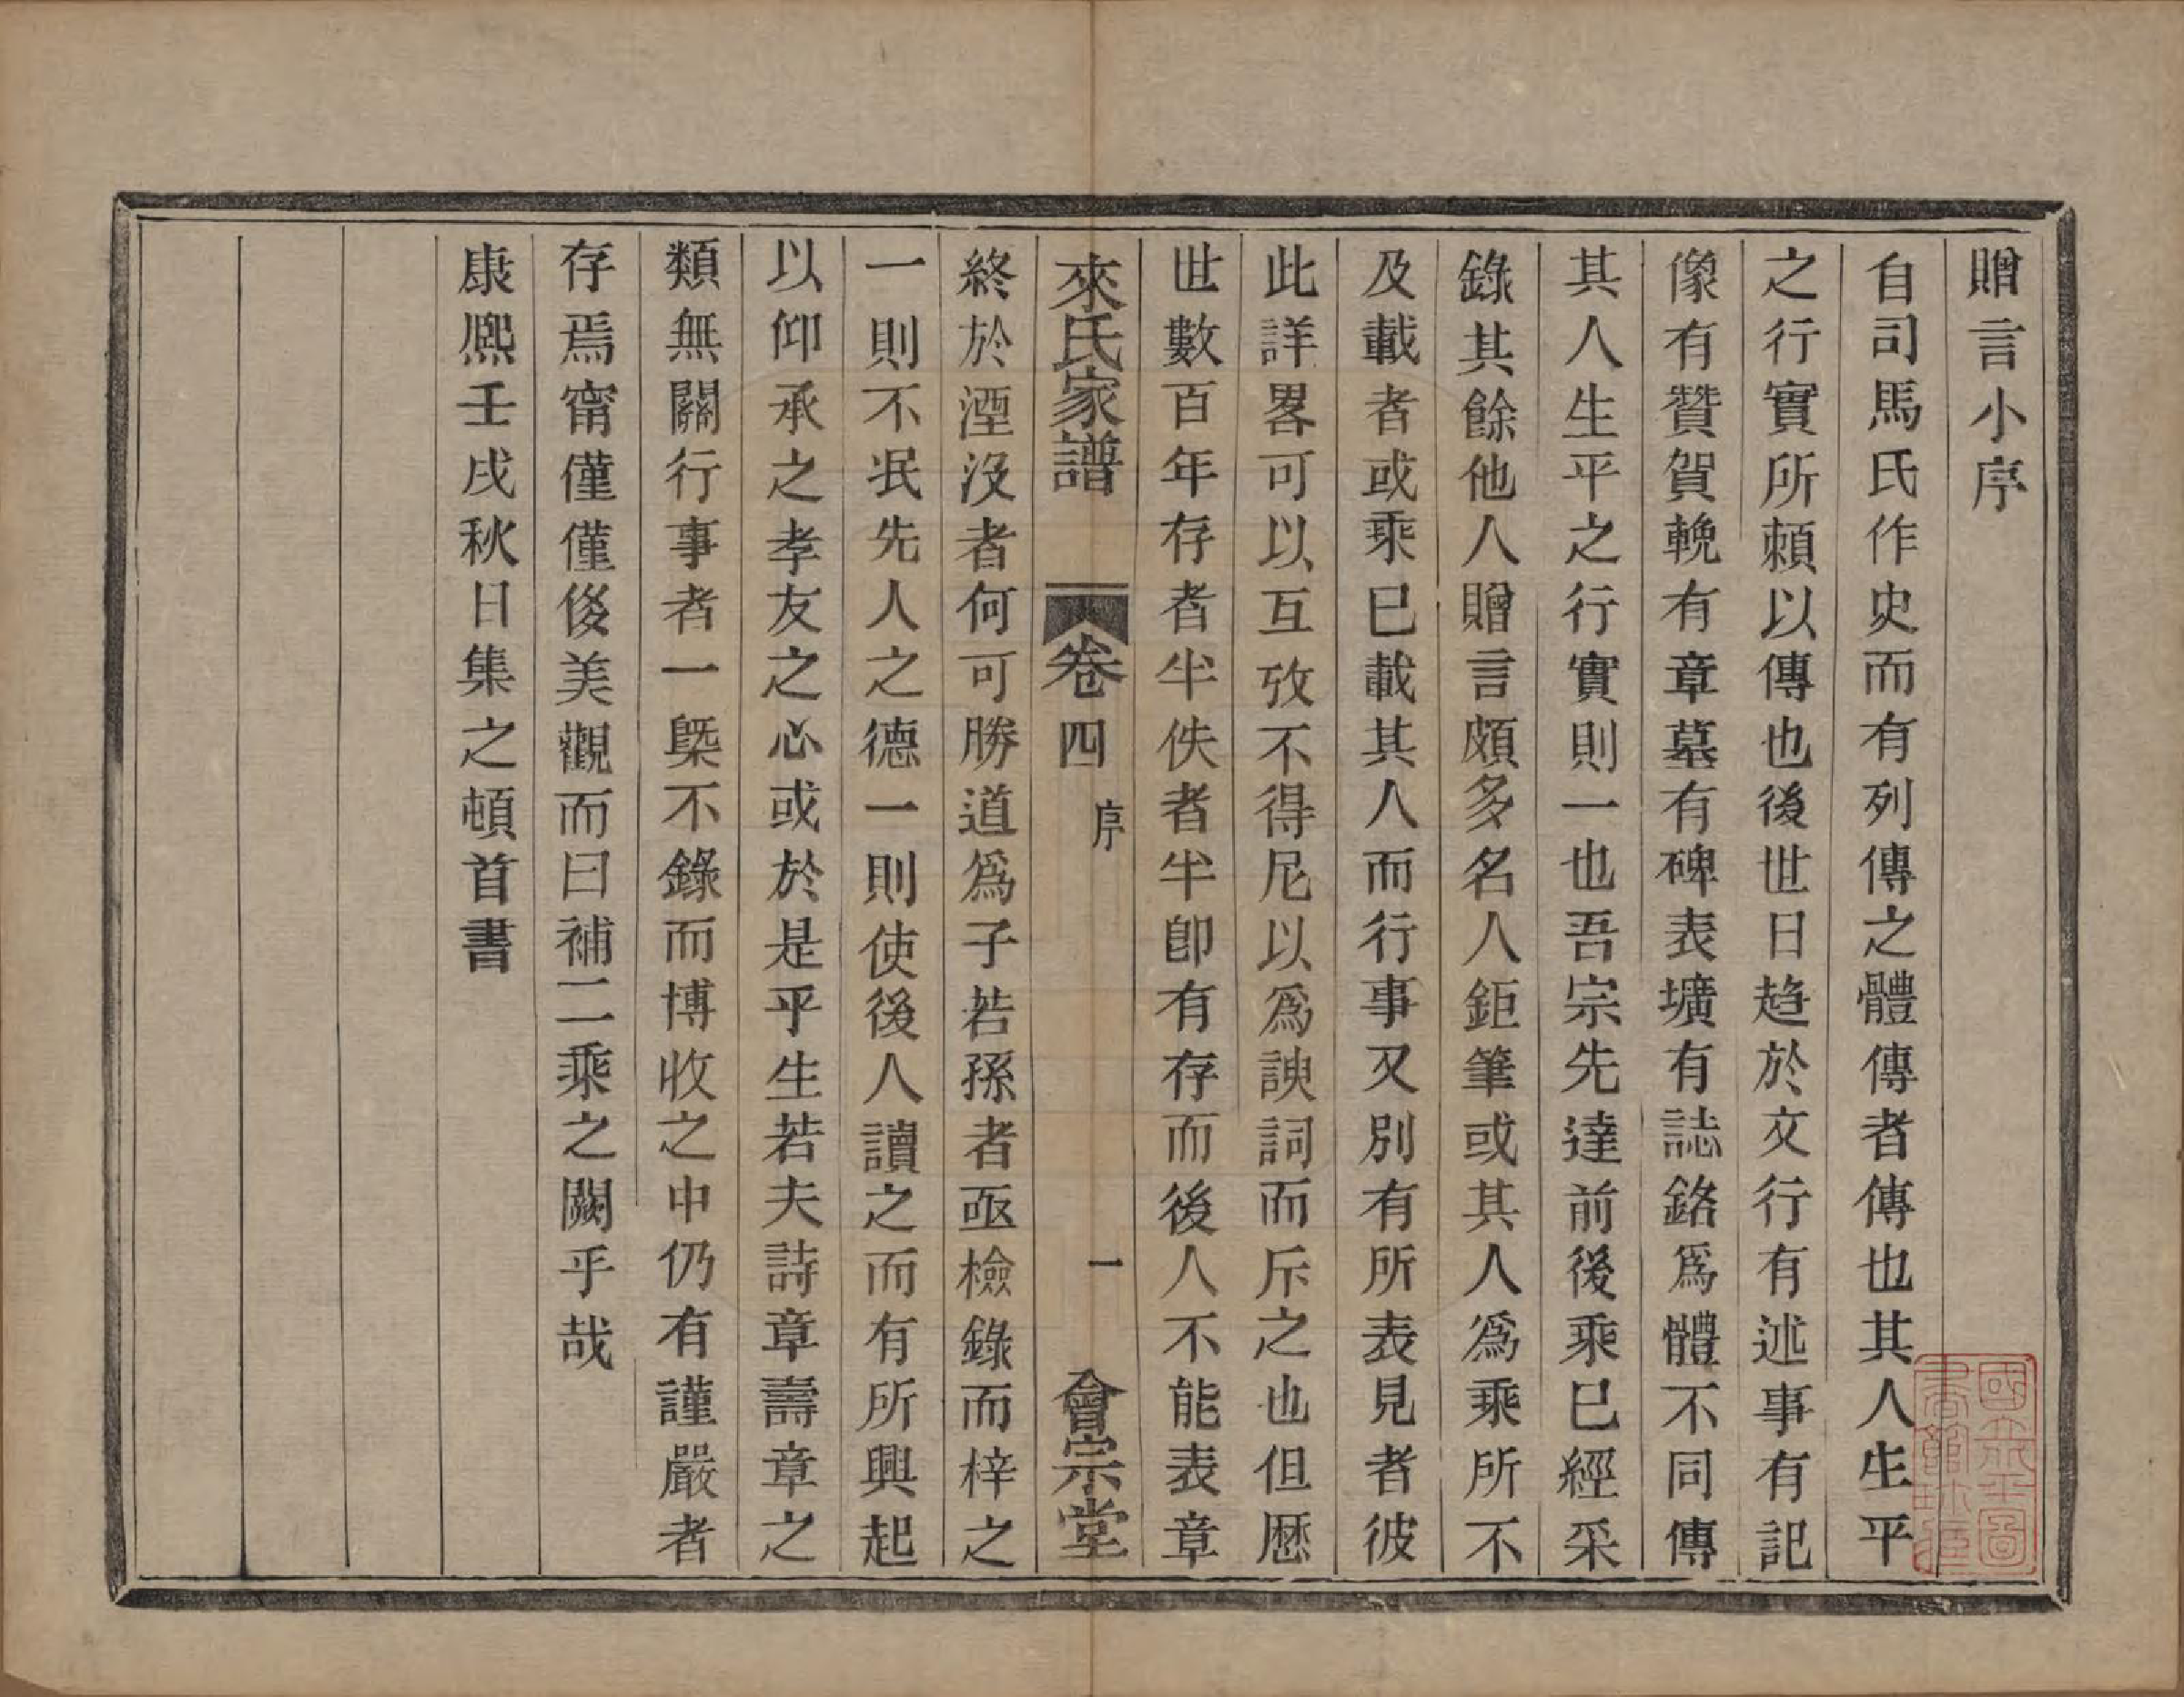 贈言小序
自司馬氏作史而有列傳之體傳者傳也其人生平
之行實所賴以傳也後世日趋於文行有述事有記
像有贊賀輓有章墓有碑表壙有誌銘爲體不同傳
其人生平之行實則一也吾宗先達前後乘巳經采
錄其餘他人贈言頗多名人鉅筆或其人爲乘所不
及載者或乘已載其人而行事又別有所表見者彼
此詳畧可以互攷不得尼以爲諛詞而斥之也但歷
世數百年存者半佚者半卽有存而後人不能表章
來氏家譜 卷四 序 一 會宗堂
終於湮沒者何可勝道爲子若孫者亟檢錄而梓之
一則不泯先人之德一則使後人讀之而有所興起
以仰承之孝友之心或於是乎生若夫詩章壽章之
類無關行事者一槩不錄而博收之中仍有謹嚴者
存焉甯僅僅侈美觀而曰補二乘之闕乎哉
康熙壬戌秋日集之頓首書
國立北平圖書館珍藏